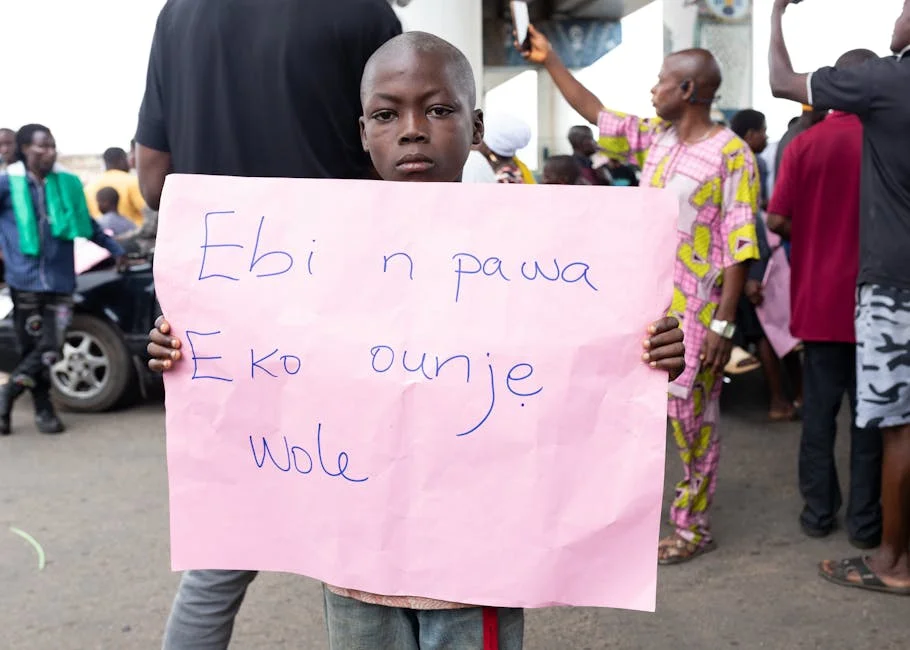 Ebi n pawa
Eko ounjẹ
wole